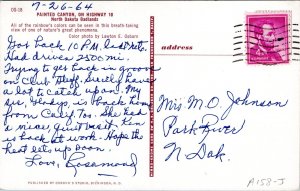 DG-18
7-26-64
PAINTED CANYON, ON HIGHWAY 10
North Dakota Badlands
All of the rainbow's colors can be seen in this breath taking
view of one of nature's great phenomena.
Color Photo by Lawton E. Osborn
address
Got back 10 P.M. last nite.
Had driven 2500 mi.
Trying to get back in groove
on Club stuff. Surely have
a lot to catch up on. My
sis, Gladys, is back home
from Calif. too. She had
a nice, quiet rest. Jim
is back to work. Hope the
heat lets up soon.
Love, Rosamond
Mrs. M. O. Johnson
Park River
N. Dak.
A158-J